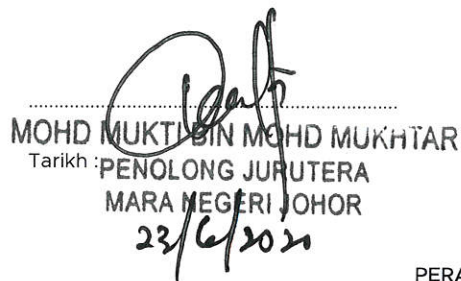 MOHD MUKTI BIN MOHD MUKHTAR
Tarikh : PENOLONG JURUTERA
MARA NEGERI JOHOR
23/6/2020
PERA